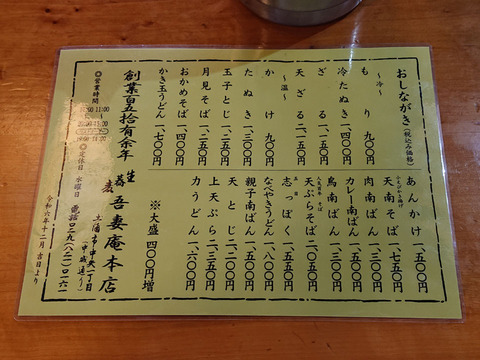 おしながき(税込み価格)
～冷～
もり 九〇〇
冷たぬき 一、四〇〇
ざる 一、二〇〇
天ざる 二、一五〇
～温～
かけ 九〇〇
たぬき 一、三〇〇
玉子とじ 一、二〇〇
月見そば 一、二五〇
おかめそば 一、四〇〇
かき玉うどん 一、七〇〇
創業百五拾有余年
◎営業時間
◎定休日 水曜日
あんかけ 一、五〇〇
天南そば 一、七五〇
肉南ばん 一、三五〇
カレー南ばん
鳥南ばん
天ぷらそば 二、〇〇〇
志っぽく 一、五〇〇
なべやきうどん 一、八〇〇
親子南ばん 一、五〇〇
天とじ 二、二〇〇
上天ぷら 二、三五〇
力うどん 一、六〇〇
※大盛 四〇〇円増
吾妻庵本店
土浦市中央一丁目
(中城通り)
電話〇二九八(二一)〇二六一
令和六年十二月吉日より